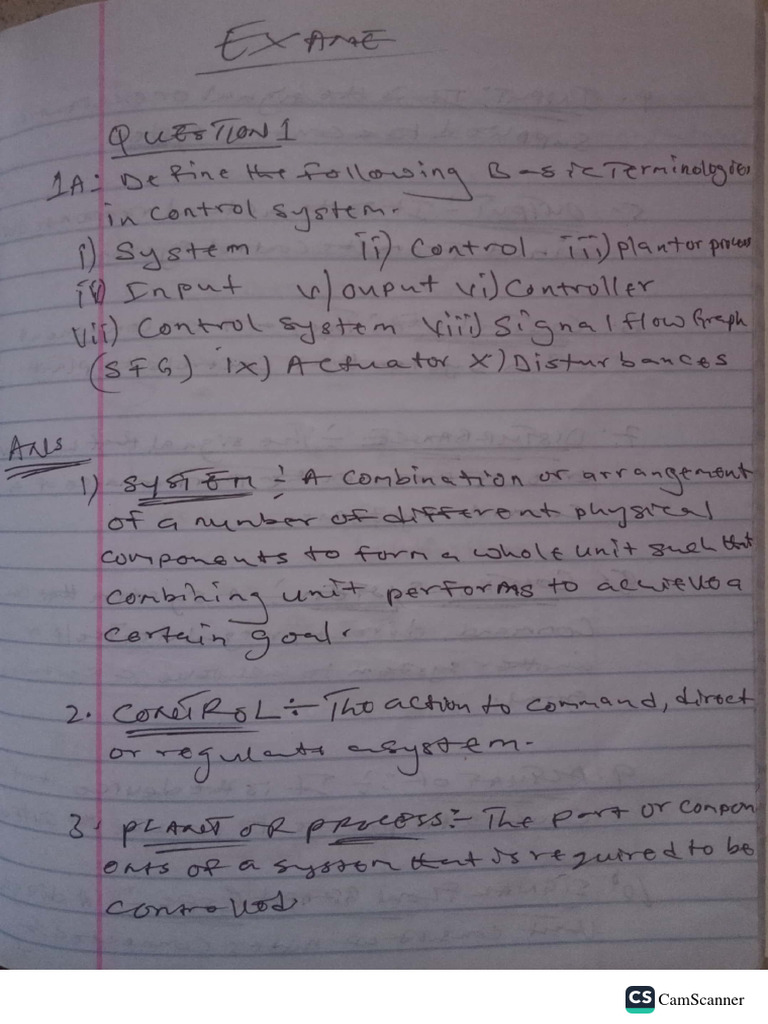 EXAME
QUESTION 1
1A: Define the following Basic Terminologies
in control system.
i) System ii) Control. iii) plant or process
iv) Input v) ouput vi) Controller
vii) Control System viii) Signal flow Graph
(SFG) ix) Actuator x) Disturbances
Ans
1) SYSTEM ÷ A combination or arrangement
of a number of different physical
components to form a whole unit such that
combining unit performs to achieve a
certain goal.
2. CONTROL ÷ The action to command, direct
or regulate a system.
3. PLANT OR PROCESS:- The part or compon
ents of a system that is required to be
controlled
CS CamScanner